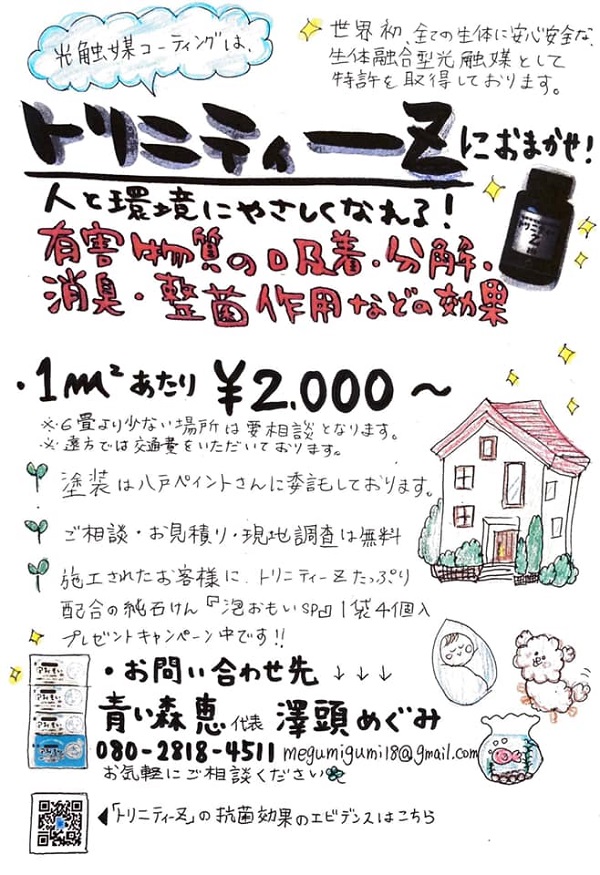 光触媒コーティングは、
世界初、全ての生体に安心安全な、
生体融合型光触媒として
特許を取得しております。
トリニティーZにおまかせ!
人と環境にやさしくなれる!
有害物質の吸着・分解・
消臭・整菌作用などの効果
トリニティー
Z
・1m²あたり ¥2,000〜
※6畳より少ない場所は要相談となります。
※遠方では交通費をいただいております。
塗装は八戸ペイントさんに委託しております。
ご相談・お見積り・現地調査は無料
施工されたお客様に、トリニティーZたっぷり
配合の純石けん『泡おもいSP』1袋4個入
プレゼントキャンペーン中です!!
・お問い合わせ先 ↓↓↓
青い森恵 代表 澤頭めぐみ
080-2818-4511 megumigumi18@gmail.com
お気軽にご相談ください
◀「トリニティーZ」の抗菌効果のエビデンスはこちら